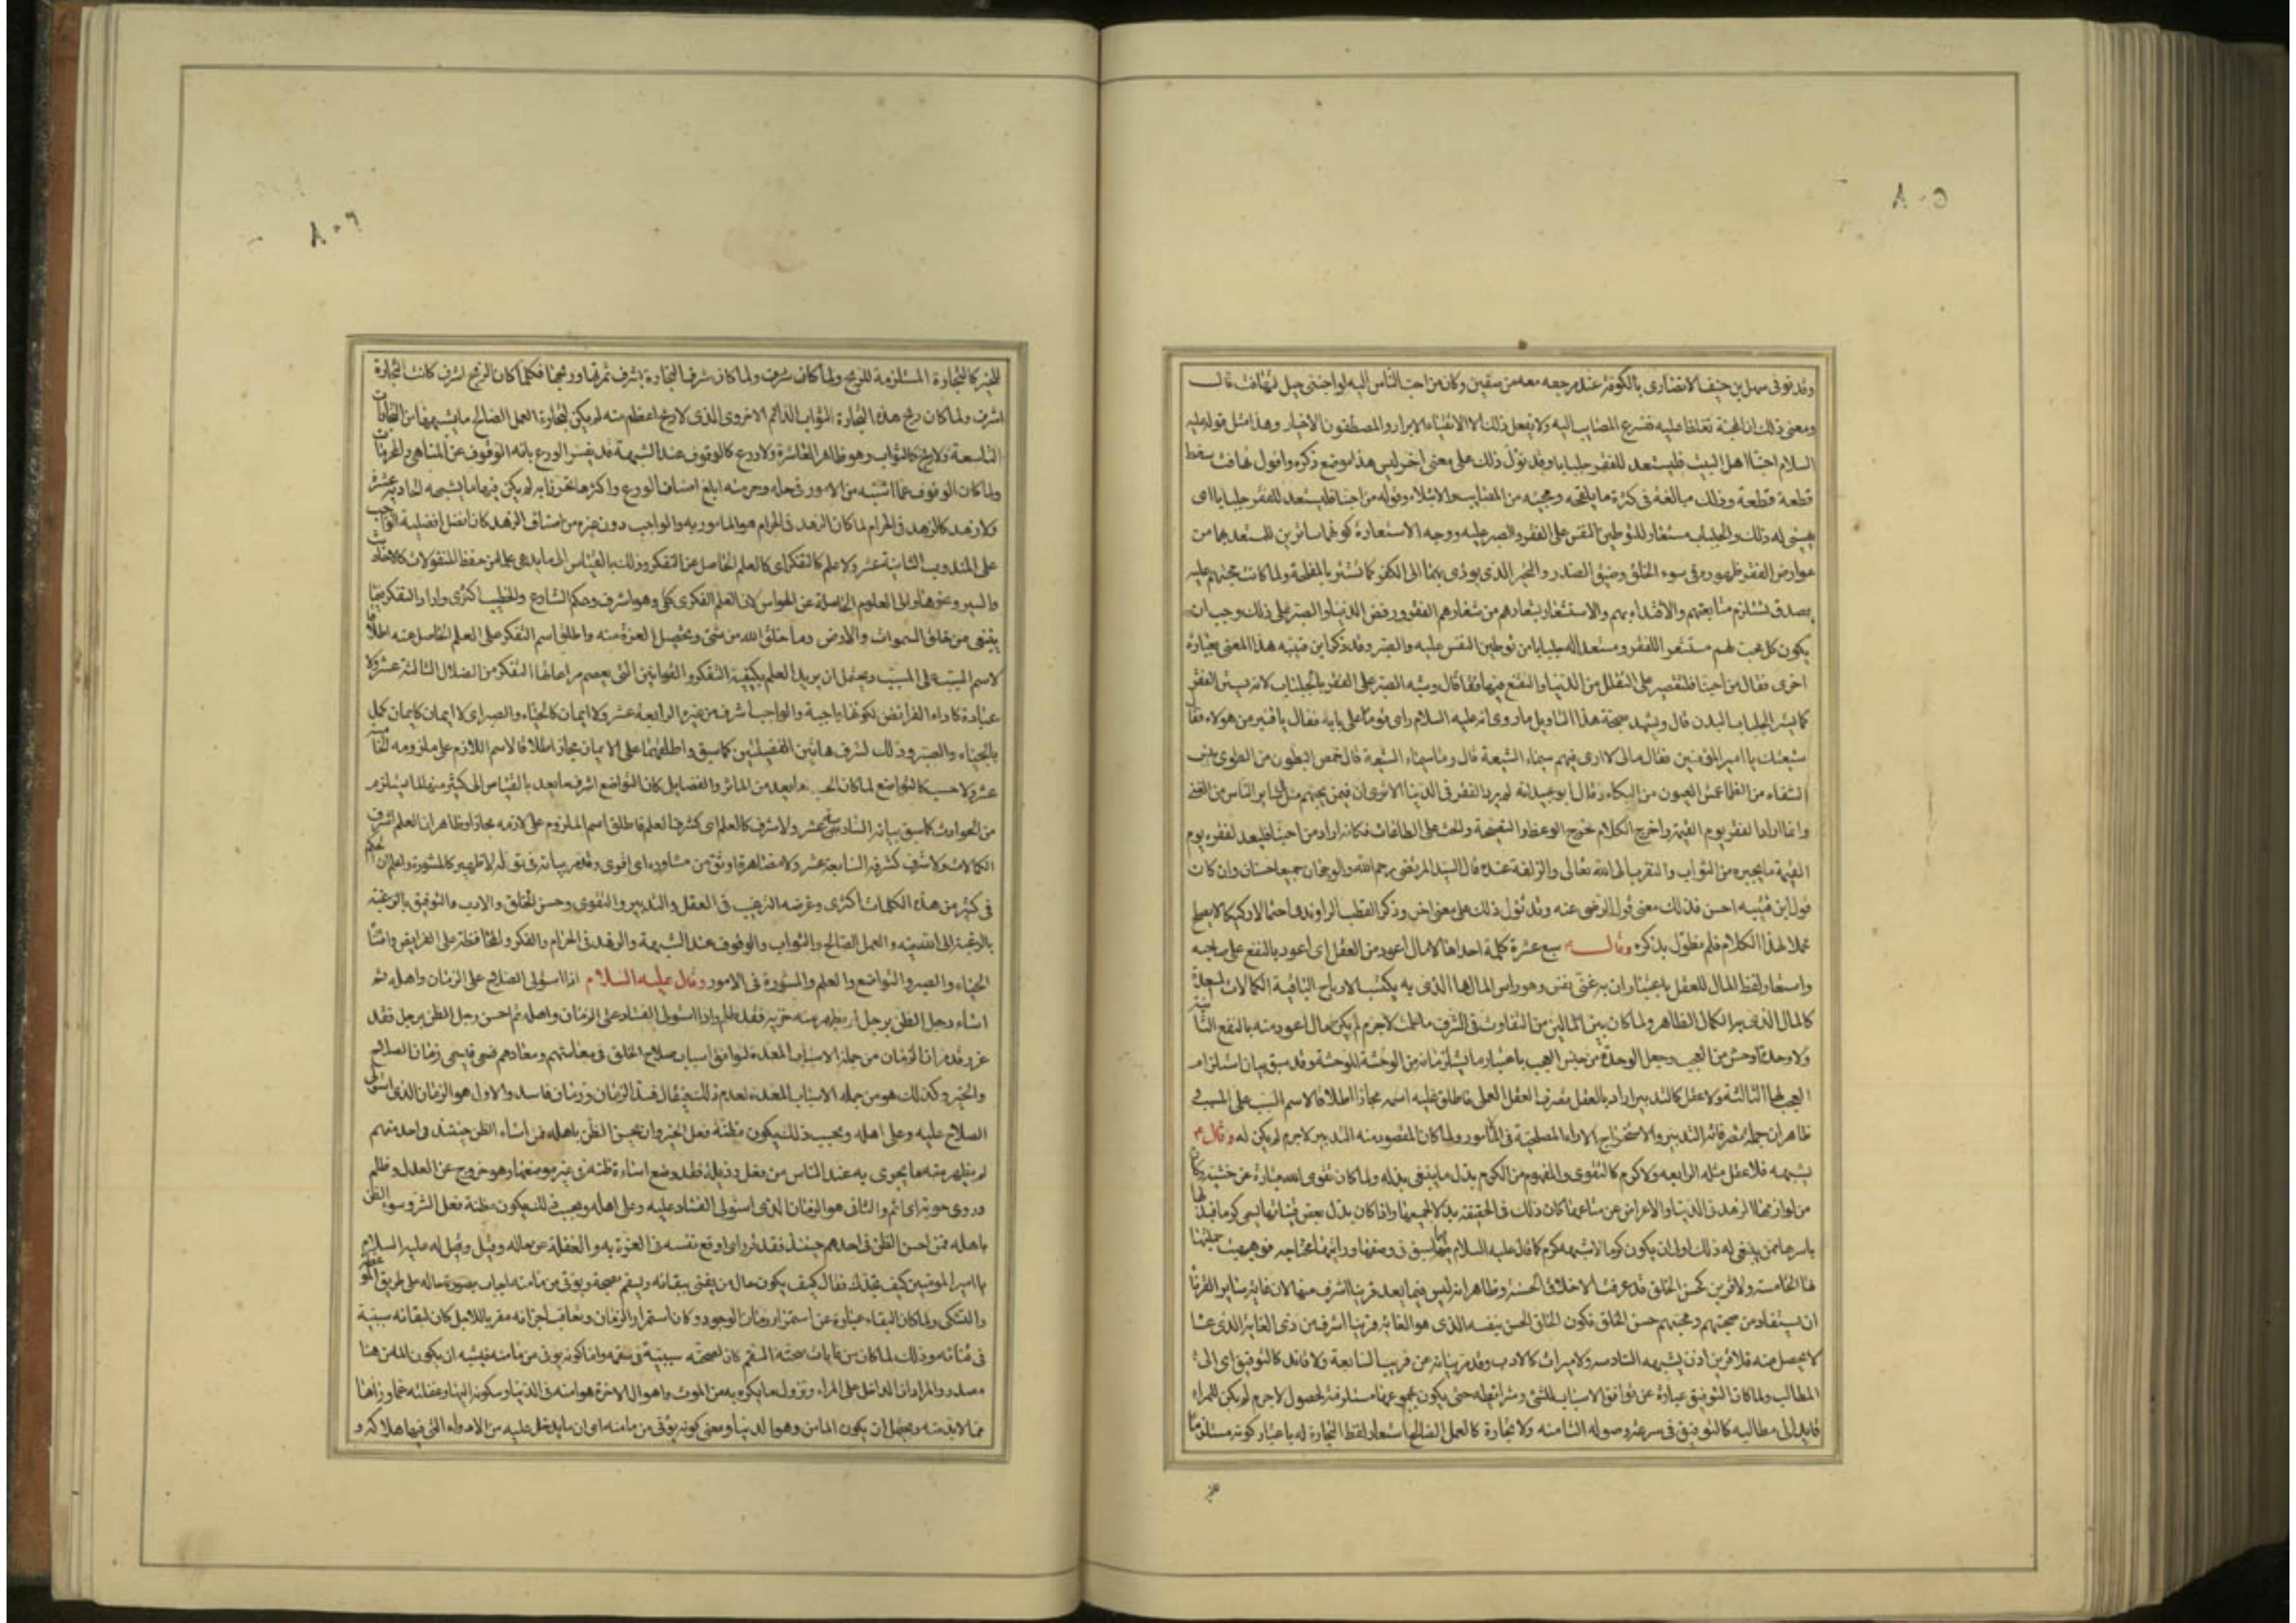 ٨٠٥
وقد توفى سهل بن حنيف الانصارى بالكوفة عند مرجعه معه من صفين وكان من احب الناس اليه لو احبنى جبل لتهافت قال
ومعنى ذلك ان المحنة تغلظ عليه فتسرع المصايب اليه ولا يفعل ذلك الا بالاتقياء الابرار والمصطفين الاخيار وهذا مثل قوله عليه
السلام من احبنا اهل البيت فليستعد للفقر جلبابا وقد تؤول ذلك على معنى اخر ليس هذا موضع ذكره واقول تهافت سقط
قطعة قطعة وذلك مبالغة فى كثرة ما يلحقه ومحبيه من المصايب والابتلاء وقوله من احبنا فليستعد للفقر جلبابا اى
يهيئ له ذلك والجلباب مستعار لتوطين النفس على الفقر والصبر عليه ووجه الاستعارة كونهما ساترين للمستعد بهما من
عوارض الفقر وظهوره فى سوء الخلق وضيق الصدر والتحير الذى يؤدى بهما الى الكفر كما تستر بالملحفة ولما كانت محبتهم عليه
بصدق تستلزم متابعتهم والاقتداء بهم والاستشعار بشعارهم من شعارهم الفقر ورفض الدنيا والصبر على ذلك وجب ان
يكون كل محب لهم مستشعرا للفقر ومستعدا له جلبابا من توطين النفس عليه والصبر وقد ذكر ابن قتيبة هذا المعنى بعبارة
اخرى فقال من احبنا فليقتصر على التقلل من الدنيا والتقنع فيها قال وشبه الصبر على الفقر بالجلباب لانه يستر الفقر
كما يستر الجلباب البدن قال ويشهد بصحة هذا التاويل ما روى انه عليه السلام راى قوما على بابه فقال يا قنبر من هؤلاء فقال
شيعتك يا امير المؤمنين فقال مالى لا ارى فيهم سيماء الشيعة قال وما سيماء الشيعة قال خمص البطون من الطوى يبس
الشفاه من الظما عمش العيون من البكاء وقال ابو عبيد انه لم يرد الفقر فى الدنيا الا ترى ان فيمن يحبهم مثل ما فى ساير الناس من الغنى
وانما اراد الفقر يوم القيمة واخرج الكلام مخرج الوعظ والنصيحة والحث على الطاعات فكانه اراد من احبنا فليعد لفقره يوم
القيمة ما يجبره من الثواب والتقرب الى الله تعالى والزلفة عنده قال السيد المرتضى رحمه الله والوجهان جميعا حسنان وان كان
قول ابن قتيبه احسن فذلك معنى قول الرضى عنه وقد تؤول ذلك على معنى اخر وذكر القطب الراوندى احتمالا ركيكا لا يصلح
محملا لهذا الكلام فلم نطول بذكره وقال ع سبع عشرة كلمة احداها لا مال اعود من العقل اى اعود بالنفع على صاحبه
واستعار لفظ المال للعقل باعتبار ان به غنى النفس وهو راس المال الذى به يكتسب الارباح الباقية الكمالات المسعدة
كالمال الذى به الكمال الظاهر ولما كان بين المالين من التفاوت فى الشرف ما علمت لاجرم لم يكن مال اعود منه بالنفع الثانية
ولا وحدة اوحش من العجب وجعل الوحدة من جنس العجب باعتبار ما يستلزمانه من الوحشة وقد سبق بيان استلزام
العجب لها الثالثة ولا عقل كالتدبير اراد بالعقل تصرف العقل العملى فاطلق عليه اسمه مجازا اطلاقا لاسم السبب على المسبب و
ظاهر ان جملة تصرفاته التدبير والاستخراج الاراء المصلحية فى الامور ولما كان المقصود منه التدبير لاجرم لم يكن له
يشبهه فلا عقل مثله الرابعه ولا كرم كالتقوى والمفهوم من الكرم بذل ما ينبغى بذله ولما كان تقوى الله عبارة عن خشيته وكان
من لوازمها الزهد فى الدنيا والاعراض عن متاعها كان ذلك فى الحقيقة بذلا لجميعها واذا كان بذل بعض قيناتها يسمى كرما فبذلها
باسرها ممن ينبغى له ذلك اولى ان يكون كرما لا يشبهه كرم كما قال عليه السلام
لها الخامسة ولا قرين كحسن الخلق قد عرفت الاخلاق الحسنة وظاهر انه ليس فيما يعد قرينا اشرف منها لان غاية ساير القرناء
ان يستفاد من صحبتهم ومحبتهم حسن الخلق فكون الخلق الحسن بنفسه الذى هو الغاية قرينا اشرف من ذى الغاية الذى عسا
لا يحصل منه فلا قرين اذن يشبهه السادسه ولا ميراث كالادب وقد مر بيانه عن قريب السابعة ولا قائد كالتوفيق اى الى
المطالب ولما كان التوفيق عبارة عن توافق الاسباب للشئ وشرائطه حتى يكون بمجموعها مستلزمة لحصول لاجرم لم يكن للمراء
قايد الى مطالبه كالتوفيق فى سرعة وصوله الثامنه ولا تجارة كالعمل الصالح استعار لفظ التجارة له باعتبار كونه مستلزما
٨٠٦
للخير كالتجارة المستلزمة للربح ولما كان شرف التجارة بشرف ثمرتها وربحها فكلما كان الربح اشرف كانت التجارة
اشرف ولما كان ربح هذه التجارة الثواب الدائم الاخروى الذى لا ربح اعظم منه لم يكن لتجارة العمل الصالح ما يشبهها من التجارات
التاسعة ولا ربح كالثواب وهو ظاهر العاشرة ولا ورع كالوقوف عند الشبهة قد يفسر الورع بانه الوقوف عن المناهى والمحرمات
ولما كان الوقوف عما اشتبه من الامور فى حله وحرمته ابلغ اصناف الورع واكثرها تحرزا به لم يكن فيها ما يشبهه الحادية عشر
ولا زهد كالزهد فى الحرام لما كان الزهد فى الحرام هو المامور به والواجب دون غيره من اصناف الزهد كان افضل افضلية الواجب
على المندوب الثانية عشر ولا علم كالتفكر اى كالعلم الحاصل عن التفكر وذلك بالقياس الى ما يدعى علما من حفظ المنقولات كالاحاديث
والسير ونحوها والى العلوم الحاصلة عن الحواس لان العلم الفكرى كلى وهو اشرف وحكم الشارع والخطيب اكثرى واراد التفكر فيما
ينبغى من خلق السموات والارض وما خلق الله من شئ وتحصيل العبرة منه واطلق اسم التفكر على العلم الحاصل عنه اطلاقا
لاسم السبب على المسبب ويحتمل ان يريد العلم بكيفية التفكر والقوانين التى يعصم مراعاتها التفكر من الضلال الثالثة عشر ولا
عبادة كاداء الفرائض لكونها واجبة والواجب اشرف من غيره الرابعة عشر ولا ايمان كالحياء والصبر اى لا ايمان كايمان كمل
بالحياء والصبر وذلك لشرف هاتين الفضيلتين كما سبق واطلاقهما على الايمان مجازا اطلاقا لاسم اللازم على ملزومه الخامسة
عشر ولا حسب كالتواضع لما كان الحسب ما يعد من الماثر والفضايل كان التواضع اشرف ما يعد بالقياس الى كثير منها لما يستلزم
من الحوادث كما سبق بيانه السادسة عشر ولا شرف كالعلم اى كشرف العلم فاطلق اسم الملزوم على لازمه مجازا وظاهر ان العلم اشرف
الكمالات ولا شرف كشرفه السابعة عشر ولا مظاهرة اوثق من مشاورة اى اقوى وقد مر بيانه فى قوله لا ظهير كالمشورة واعلم ان الحكم
فى كثير من هذه الكلمات اكثرى وغرضه الترغيب فى العقل والتدبير والتقوى وحسن الخلق والادب والتوفيق بالرغبة
بالرغبة الى الله فيه والعمل الصالح والثواب والوقوف عند الشبهة والزهد فى الحرام والفكر والمحافظة على الفرايض
الحياء والصبر والتواضع والعلم والمشورة فى الامور وقال عليه السلام اذا استولى الصلاح على الزمان واهله ثم
اساء رجل الظن برجل لم يظهر منه خزية فقد ظلم واذا استولى الفساد على الزمان واهله ثم احسن رجل الظن برجل فقد
غرر قد مر ان الزمان من جملة الاسباب المعدة لتوافق اسباب صلاح الخلق فى معاشهم ومعادهم فسمى زمان الصلاح
والخير وكذلك هو من جملة الاسباب المعدة لعدم ذلك فيقال فسد الزمان وزمان فاسد والاول هو الزمان الذى استولى
الصلاح عليه وعلى اهله وبحسب ذلك يكون مظنة فعل الخير وان يحسن الظن باهله فمن اساء الظن حينئذ فى احد منهم
لم يظهر منه ما يجرى به عند الناس من فعل رذيلة فقد وضع اساءة ظنه فى غير موضعها وهو خروج عن العدل وظلم
وروى حوبة اى اثم والثانى هو الزمان الذى استولى الفساد عليه وعلى اهله وبحسب ذلك يكون مظنة فعل الشر وسوء الظن
باهله فمن احسن الظن فى احدهم حينئذ فقد غرر اى اوقع نفسه فى الغرة به والغفلة عن حاله وقيل له عليه السلام
يا امير المؤمنين كيف نجدك فقال كيف يكون حال من يفنى ببقائه ويسقم بصحته ويؤتى من مامنه اجاب بصورة حاله على طريق الموعظة
والتشكى ولما كان البقاء عبارة عن استمرار زمان الوجود وكان استمرار الزمان وتعاقب اجزائه مقربا للاجل كان لبقائه سببية
فى فنائه وذلك لما كان من غايات صحته السقم كان لصحته سببية فى سقمه واما كونه يؤتى من مامنه فيشبه ان يكون المامن هنا
مصدر والمراد ان الداخل على المراء ونزول ما يكره به من الموت واهوال الاخرة هو امنه فى الدنيا وسكونه اليها وغفلته عما وراها
مما لا بد منه ويحتمل ان يكون المامن وهو الدنيا ومعنى كونه يؤتى من مامنه اى ان ما يدخل عليه من الادواء التى فيها هلاكه و